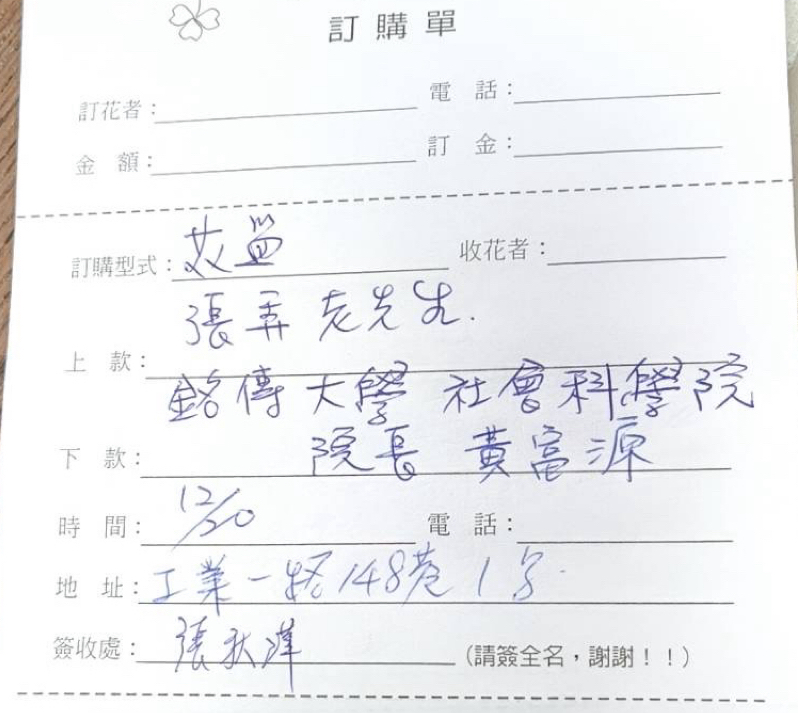 訂購單
訂花者： 電話：
金額： 訂金：
訂購型式： 收花者：
張弄老先生.
上款：
銘傳大學 社會科學院
下款： 院長 黃富源
時間：12/20 電話：
地址：工業一路148巷1号
簽收處：張秋 (請簽全名，謝謝！！)